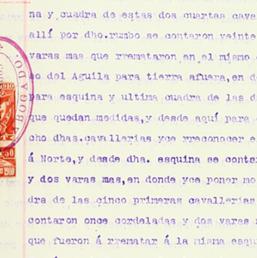 na y cuadra de estas dos cuartas cava
allí por dho. rumbo se contaron veinte
varas mas que rremataron en el mismo c
mo del Aguila para tierra afuera, en de
para esquina y ultima cuadra de las d
que quedan medidas, y desde aquí para
cho dhas. cavallerias yce rreconocer e
á Norte, y desde dha. esquina se conte
y dos varas mas, en donde yce poner mo
dra de las cinco primeras cavallerías
contaron once cordeladas y dos varas m
que fueron á rrematar á la misma esqu